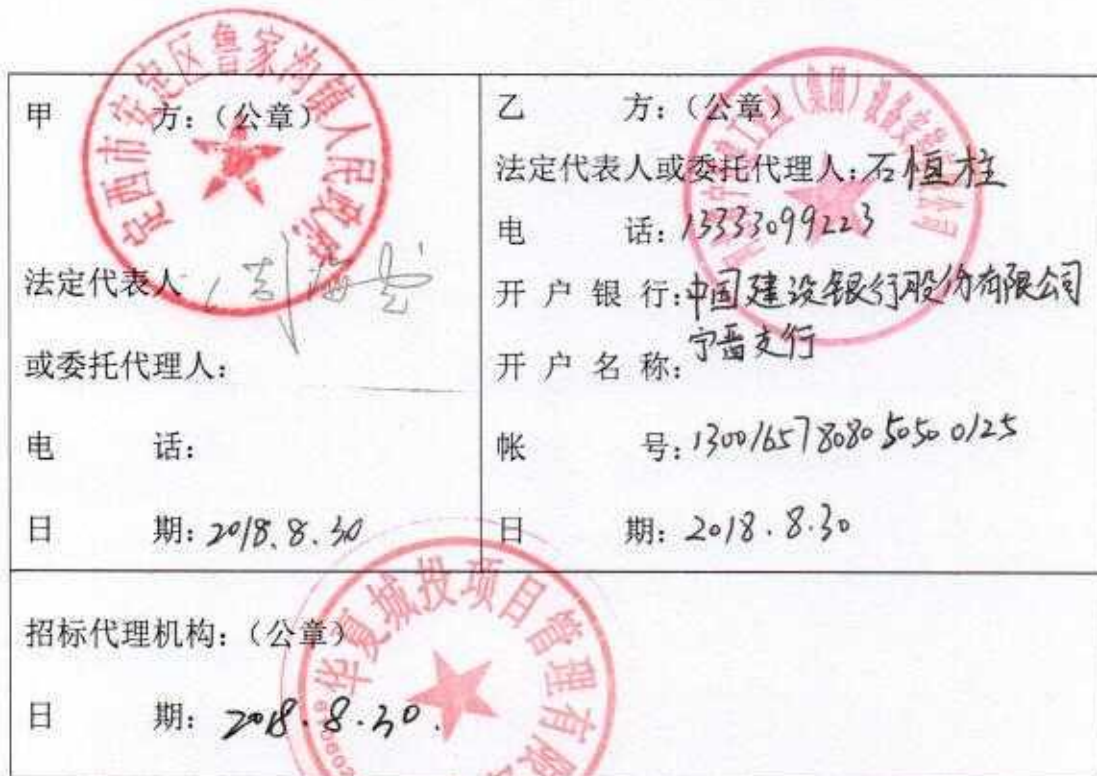 定西市安定区鲁家沟镇人民政府
甲 方:(公章)
法定代表人
或委托代理人:
电 话:
日 期: 2018.8.30
乙 方:(公章)
法定代表人或委托代理人:石恒柱
电 话:13333099223
开户银行:中国建设银行股份有限公司
宁晋支行
开户名称:
帐 号:13001657808050500125
日 期: 2018.8.30
(集团)设备安装
公司
招标代理机构:(公章)
日 期: 2018.8.30.
华夏城投项目管理有限